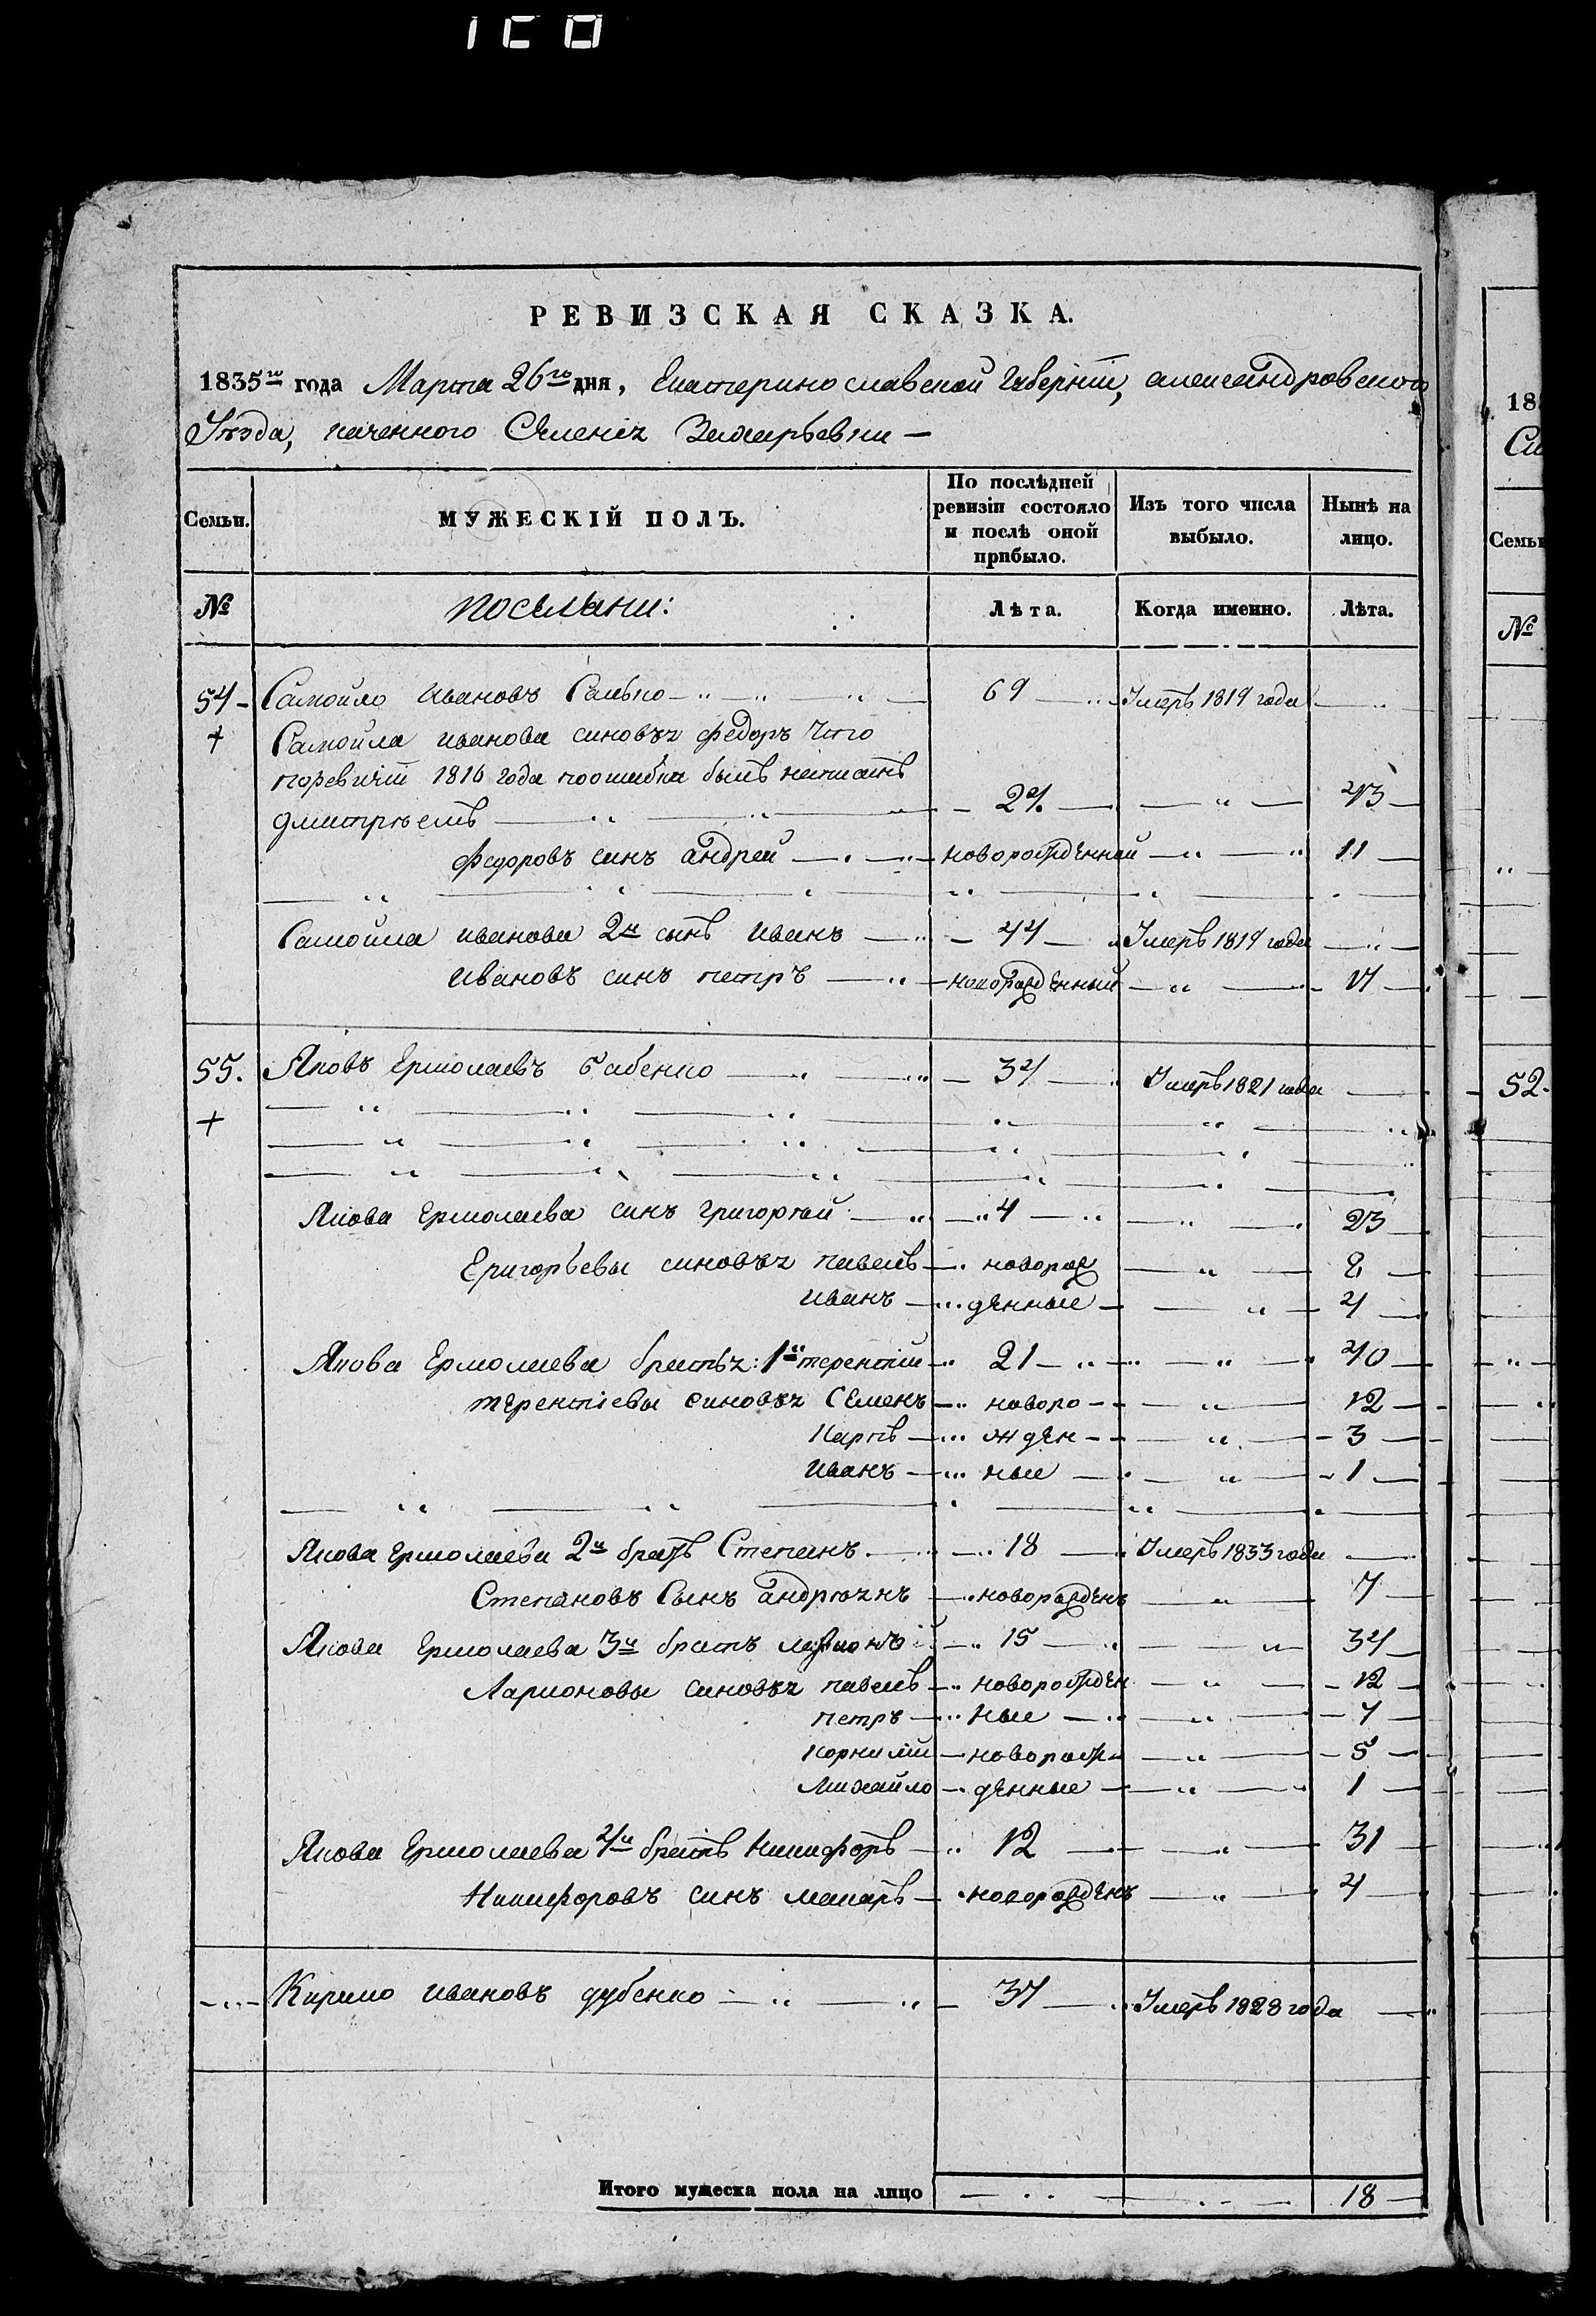 РЕВИЗСКАЯ СКАЗКА.
1835го года Марта 26го дня, Екатеринославской Губерніи, александровского
Уѣзда, казенного Селенія Захарьевки —
Семьи.
МУЖЕСКІЙ ПОЛЪ.
По послѣдней ревизіи состояло и послѣ оной прибыло.
Изъ того числа выбыло.
Нынѣ на лицо.
№
поселяни:
Лѣта.
Когда именно.
Лѣта.
54 Самойло ивановъ 69 Умеръ 1819 года
Самойла иванова синовья федоръ что
поревизіи 1816 года поошибки былъ написанъ
дмитріемъ 24 43
федоровъ синъ андрей новорожденной 11
Самойла иванова 2й сынъ иванъ 44 Умеръ 1819 года
ивановъ синъ петръ новорожденный 17
55. Яковъ Ермолаевъ бабенко 34 Умеръ 1821 года
Якова Ермолаева синъ григорій 4 23
Григорьевы синовья павелъ новорож 8
иванъ денные 4
Якова Ермолаева братья: 1й терентій 21 40
терентіевы синовья Семенъ новоро 12
Карпъ жден 3
иванъ ные 1
Якова Ермолаева 2й братъ Степанъ 18 Умеръ 1833 года
Степановъ Сынъ андріянъ новорожденъ 7
Якова Ермолаева 3й братъ ларіонъ 15 34
Ларионовы синовья павелъ новорожден 12
петръ ные 7
корнилій новорож 5
михайло денные 1
Якова Ермолаева 4й братъ Никифоръ 12 31
Никифоровъ синъ макаръ новорожденъ 4
Кирило ивановъ дубенко 37 Умеръ 1828 года
Итого мужеска пола на лицо 18
18
Семьи
№
52